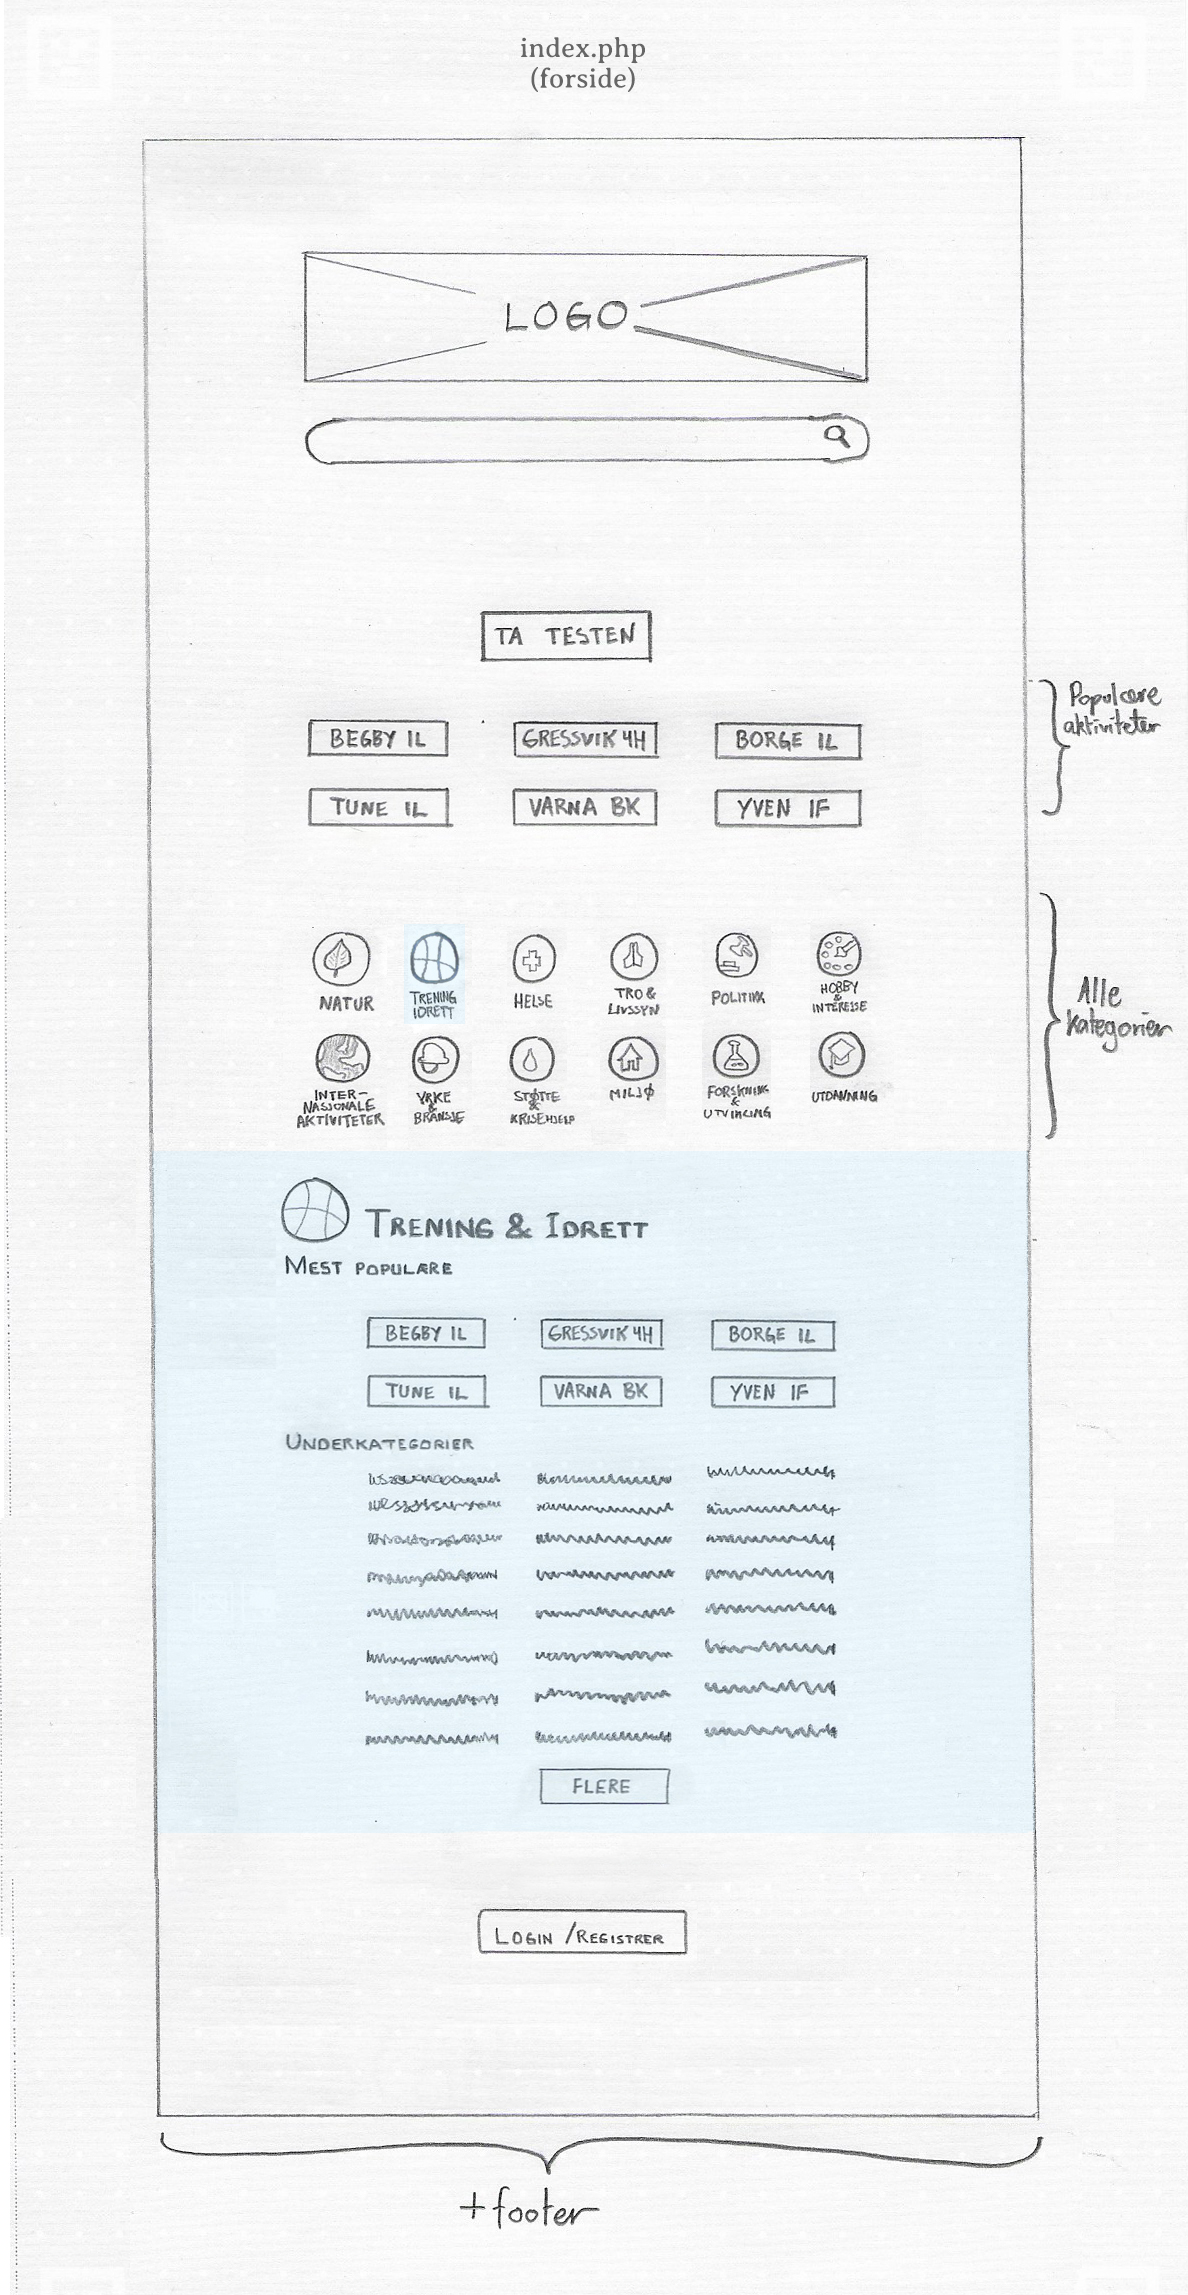 index.php
(forside)
LOGO
TA TESTEN
Populære
aktiviteter
BEGBY IL
GRESSVIK 4H
BORGE IL
TUNE IL
VARNA BK
YVEN IF
Alle
kategorier
NATUR
TRENING
IDRETT
HELSE
TRO &
LIVSSYN
POLITIKK
HOBBY
&
INTERESSE
INTER-
NASJONALE
AKTIVITETER
YRKE
&
BRANSJE
STØTTE
&
KRISEHJELP
MILJØ
FORSKNING
&
UTVIKLING
UTDANNING
TRENING & IDRETT
MEST POPULÆRE
BEGBY IL
GRESSVIK 4H
BORGE IL
TUNE IL
VARNA BK
YVEN IF
UNDERKATEGORIER
FLERE
LOGIN /REGISTRER
+footer